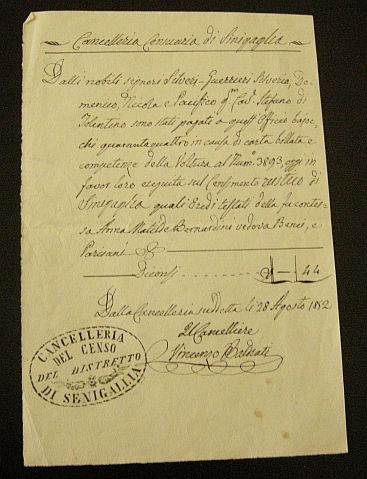 Cancelleria Censuaria di Sinigaglia
Dalli nobili signori Silverj-Guerrieri Silverio, Do-
menico, Nicola e Pacifico qm Cav. Stefano di
Tolentino sono stati pagati a quest'Officio bajoc-
chi quaranta quattro in causa di carta bollata e
competenze della Voltura al Num.º 3893 oggi in
favor loro eseguita sul Censimento rustico di
Sinigaglia quali Eredi testati della fu Contes-
sa Anna Matilde Bernardini vedova Benis, e
Parisani
Diconsi 44
Dalla Cancelleria suddetta li 28 Agosto 1852
Il Cancelliere
Vincenzo
CANCELLERIA
DEL CENSO
DEL DISTRETTO
DI SENIGALLIA